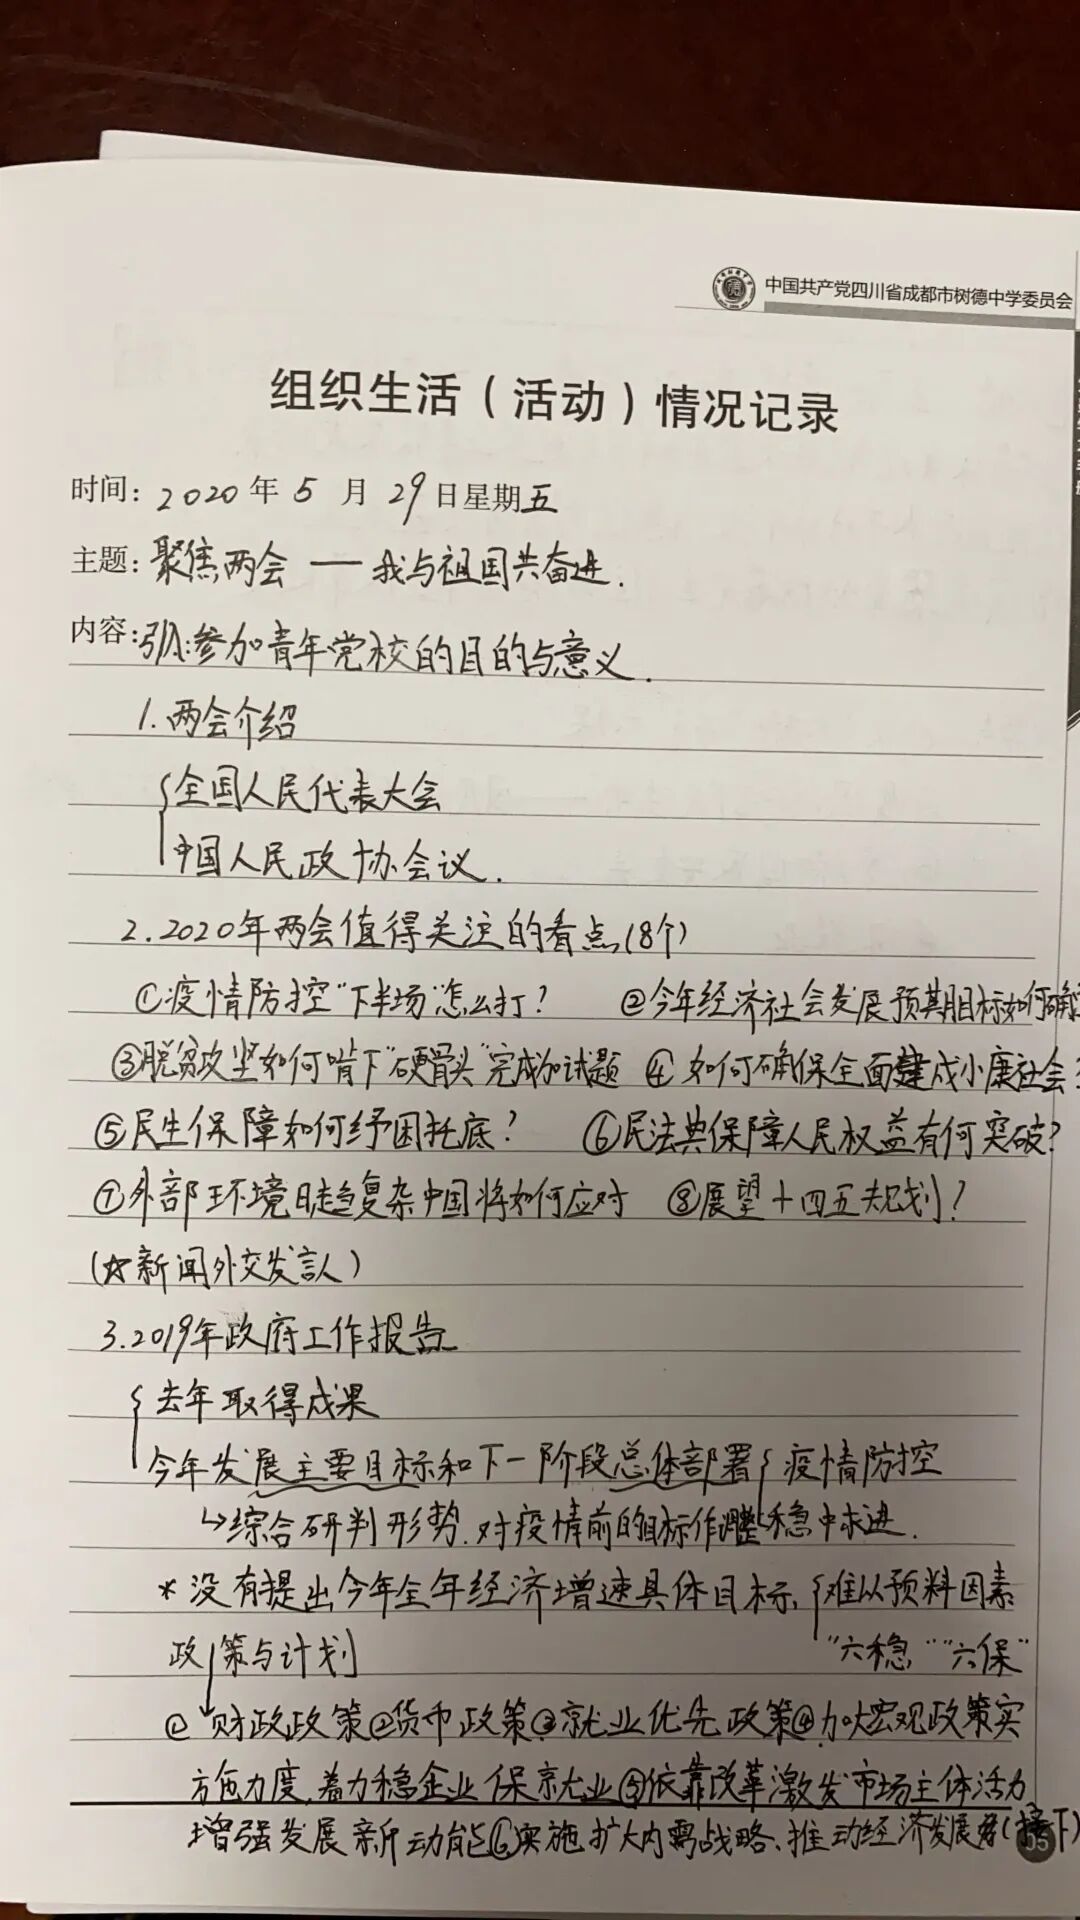 中国共产党四川省成都市树德中学委员会
组织生活（活动）情况记录
时间：2020年5月29日星期五
主题：聚焦两会——我与祖国共奋进.
内容：引入:参加青年党校的目的与意义.
1.两会介绍
全国人民代表大会
中国人民政协会议.
2.2020年两会值得关注的看点(8个)
①疫情防控“下半场”怎么打? ②今年经济社会发展预期目标如何确定
③脱贫攻坚如何啃下“硬骨头”完成加试题 ④如何确保全面建成小康社会?
⑤民生保障如何纾困托底? ⑥民法典保障人民权益有何突破?
⑦外部环境日趋复杂中国将如何应对 ⑧展望十四五规划?
(☆新闻外交发言人)
3.2019年政府工作报告
{去年取得成果
今年发展主要目标和下一阶段总体部署{疫情防控
↳综合研判形势.对疫情前的目标作调整 稳中求进.
*没有提出今年全年经济增速具体目标.{难以预料因素
政策与计划 “六稳”“六保”
①财政政策②货币政策③就业优先政策④加大宏观政策实
施力度,着力稳企业保就业⑤依靠改革激发市场主体活力
增强发展新动能⑥实施扩大内需战略、推动经济发展方(接下)
05